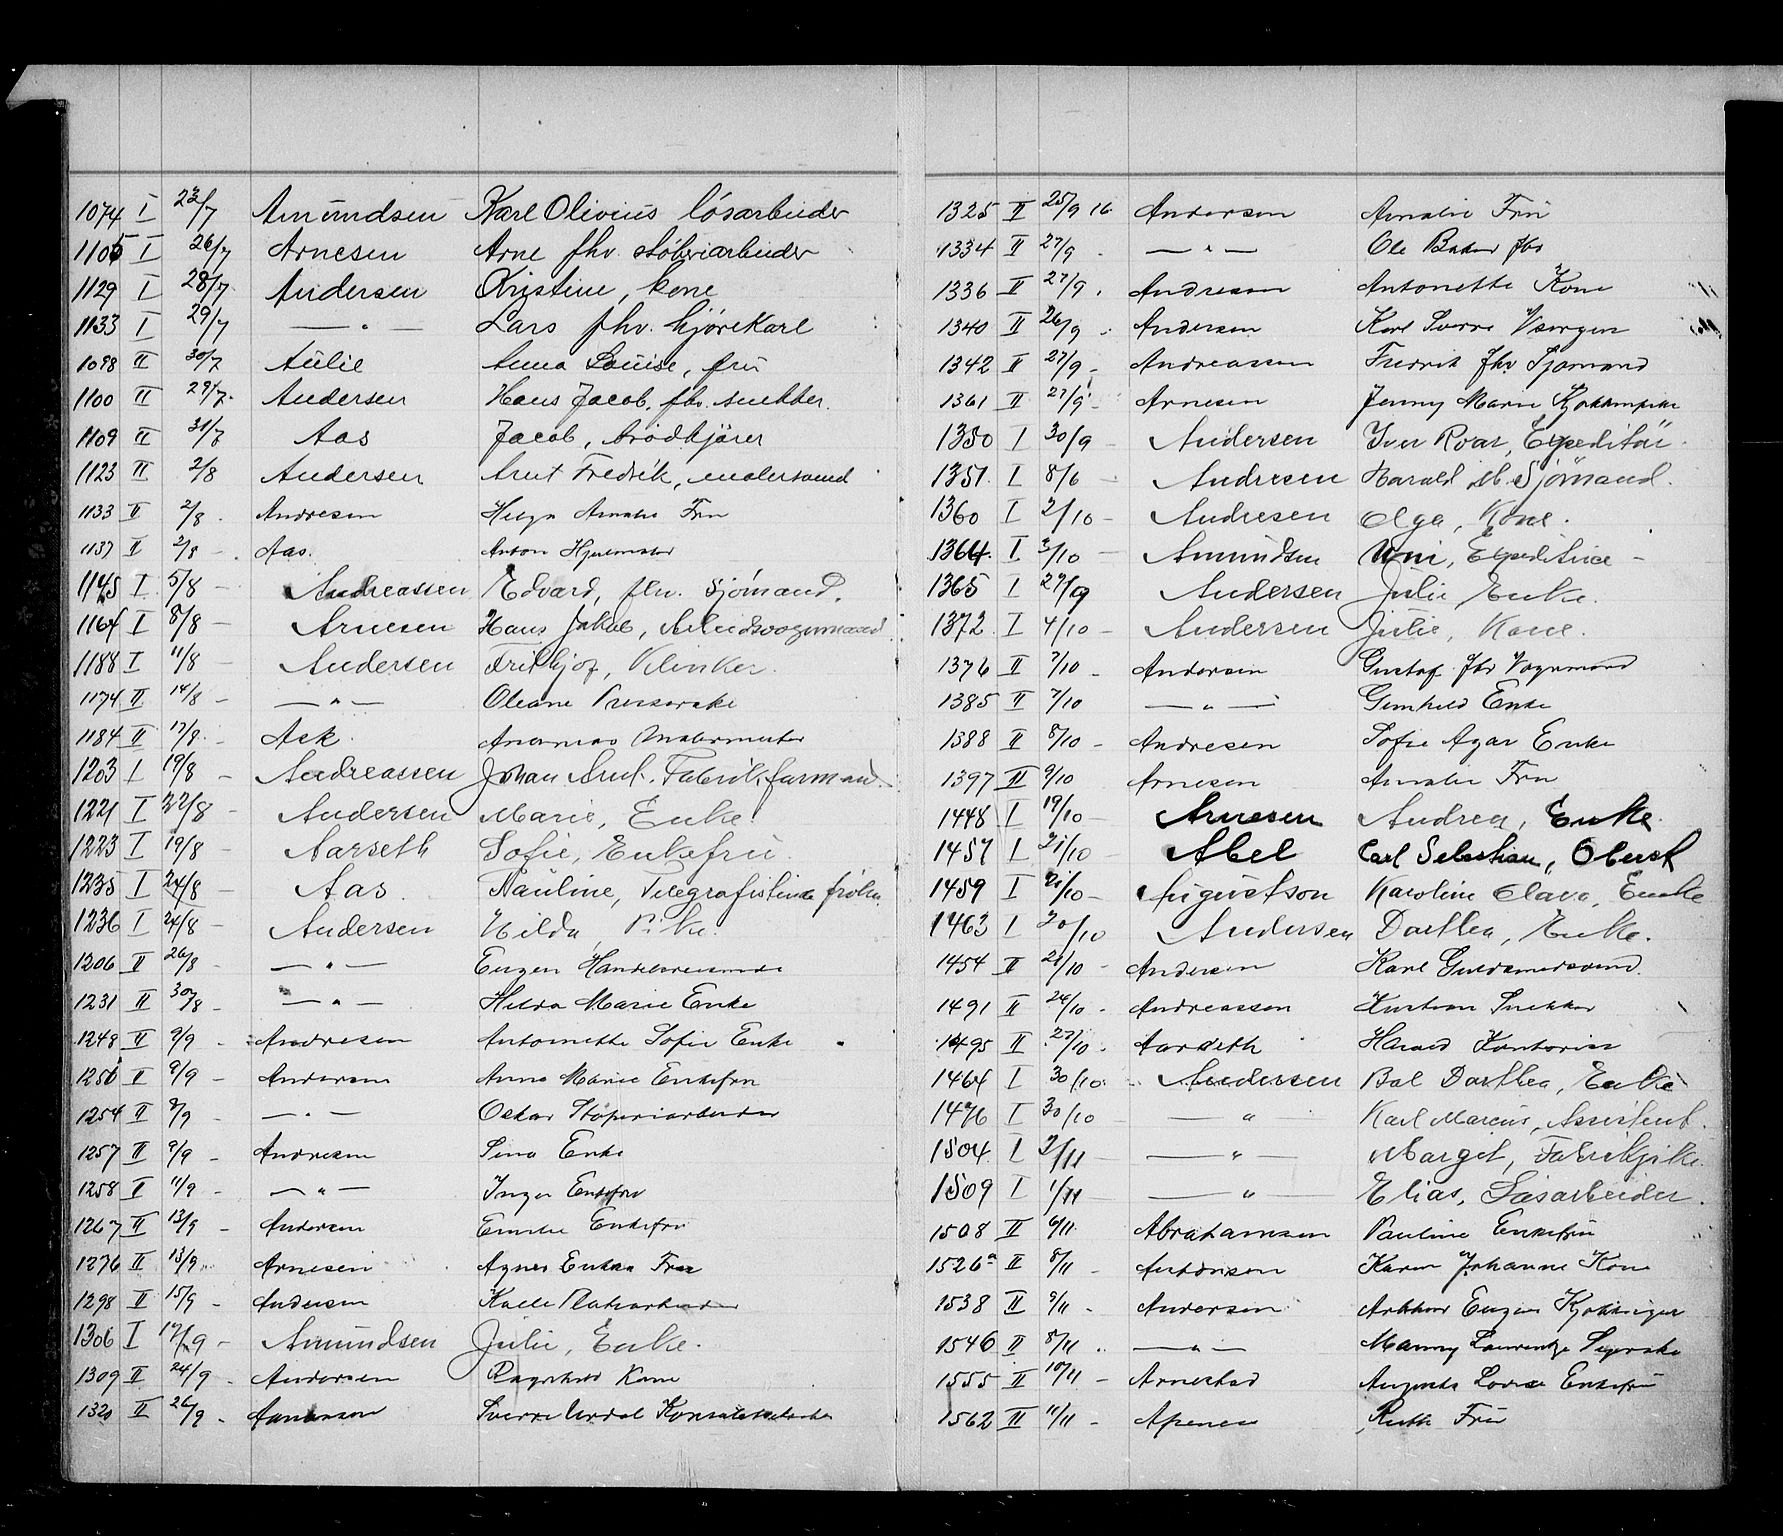 1074 I 23/7 Amundsen Karl Olivius løsarbeider
1105 I 26/7 Arnesen Arne fhv. støberiarbeider
1129 I 28/7 Andersen Kristine, kone
1133 I 29/7 — " — Lars fhv. kjørekarl
1098 II 30/7 Aulie Anna Louise, fru
1100 II 29/7 Andersen Hans Jacob, fhv. snekker.
1109 II 31/7 Aas Jacob, brødkjører
1123 II 2/8 Andersen Arnt Fredrik, malersvend
1133 II 2/8 Andresen Helga Amalie Fru
1137 II 2/8 – Aas. Anton Hjalmar
1145 I 5/8 – Andreassen Edvard, fhv. Sjømand.
1164 I 8/8 – Arnesen Hans Jakob, Arbeidsvognmand
1188 I 11/8 – Andersen Frithjof, Klinker.
1174 II 14/8 – — " — Oleane Presserske
1184 II 17/8 – Ask. Andreas Malermester
1203 I 19/8 – Andreassen Johan Arnt. Fabrik formand.
1221 I 22/8 – Andersen Marie, Enke.
1223 I 19/8 – Aarseth Sofie, Enkefru.
1235 I 24/8 – Aas. Pauline, Telegrafistinde frøken
1236 I 24/8 – Andersen Hilda, Pike.
1206 II 26/8 – — " — Eugen Handelsreisende
1231 II 30/8 – — " — Hilda Marie Enke
1248 II 9/9 – Andresen Antonette Sofie Enke
1250 II 9/9 – Andersen Anna Marie Enkefru
1254 II 9/9 – — " — Oskar Støperiarbeider
1257 II 9/9 – Andresen Sina Enke
1258 II 11/9 – — " — Inga Enkefru
1267 II 13/9 – Andersen Emilie Enkefru
1276 II 13/9 Arnesen Agnes Fru
1298 II 15/9 – Andersen Kalle Platearbeider
1306 I 17/9 – Amundsen Julie, Enke.
1309 II 24/9 – Andersen Ragnhild Kone
1320 II 26/9 – Sverre
1325 II 25/9 16 Andersen Amalie Fru
1334 II 27/9 – — " — Ole Baker fhv
1336 II 27/9 . Andresen Antonette Kone
1340 II 26/9 . Andersen Karl Sverre
1342 II 27/9 – Andreassen Fredrik fhv Sjømand
1361 II 27/9 – Arnesen Jenny Marie
1350 I 30/9 – Andersen Iver Roar, Expeditør.
1351. I 8/6 – Andresen Harald M. Sjømand.
1360 I 2/10 – Andresen Olga, Kone.
1364. I 3/10 – Amundsen Uni, Expeditrice –
1365 I 29/9 Andersen Julie Enke.
1372. I 4/10 – Andersen Julie, Kone.
1376 II 7/10 – Andersen Gustaf fhv Vognmand
1385 II 7/10 — " — Gunhild Enke
1388 II 8/10 – Andresen Sofie Agar Enke
1397 II 9/10 Arnesen Amalie Fru
1448 I 19/10 – Arnesen Andrea, Enke.
1457 I 21/10 – Abel Carl Sebastian, Oberst
1459 I 21/10 – Augustson Karoline Clara, Enke
1463 I 20/10 Andersen Dorthea, Enke.
1454 II 21/10 – Andersen Karl Guldsmedsvend.
1491 II 24/10 – Andreassen Kristian Snekker
1495 II 27/10 . Aarseth Harald Kontorist
1464 I 30/10. – Andersen Dorthea, Enke
1476 I 30/10 — " Karl Marcus, Assistent.
1504. I 2/11 – — " — Margit, Fabrikpike.
1509 I 1/11 — " Elias, Løsarbeider.
1508 II 6/11 Abrahamsen Pauline Enkefru
1526a II 8/11 – Antonsen Karen Johanne Kone
1538 II 9/11 . Andersen Arthur Eugen
1546 II 8/11 . — " — Manny Laurentze
1555 II 10/11 – Arnestad Augusta Lovise Enkefru
1562 II 11/11 – Apenes Ruth Fru